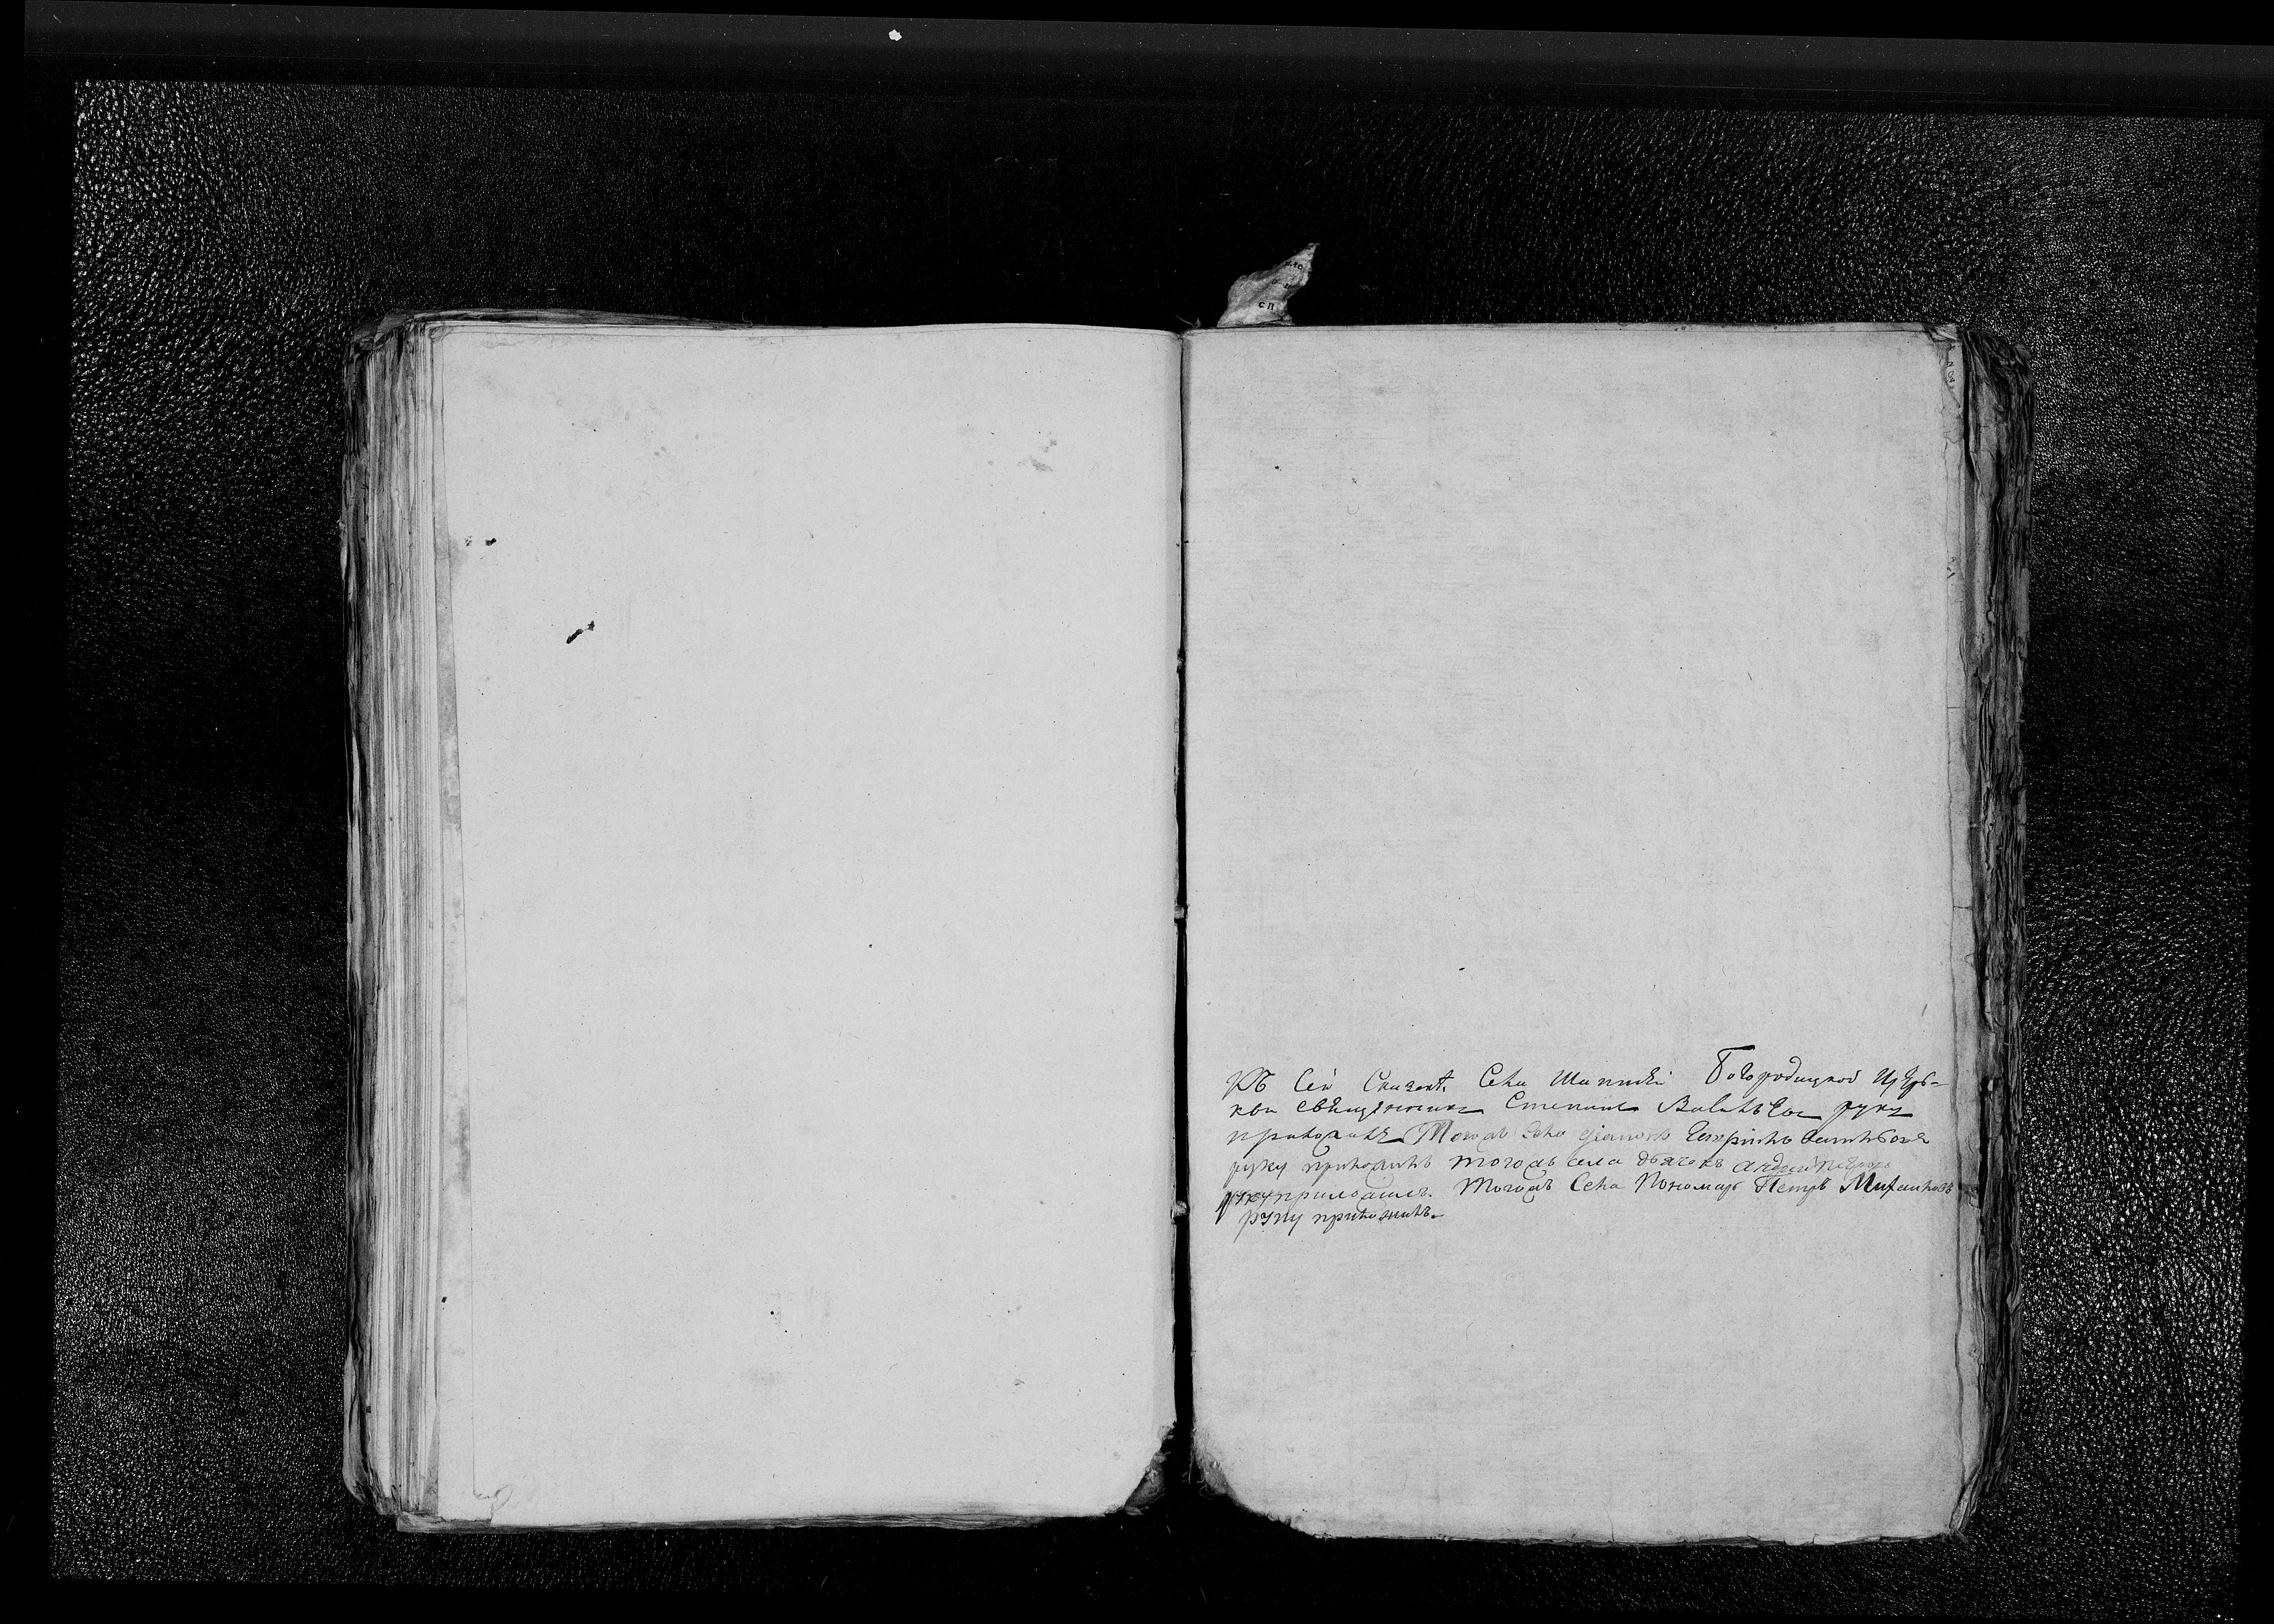 Къ Сей Сказкѣ Села Богородицкой Церь-
кви священникъ Степанъ Васильевъ руку
приложилъ Тогожъ Села диаконъ Васильевъ
руку приложилъ тогожъ села дьячокъ андрей петровъ
руку приложилъ. Тогожъ Села Пономарь Петръ Михаиловъ
руку приложилъ.